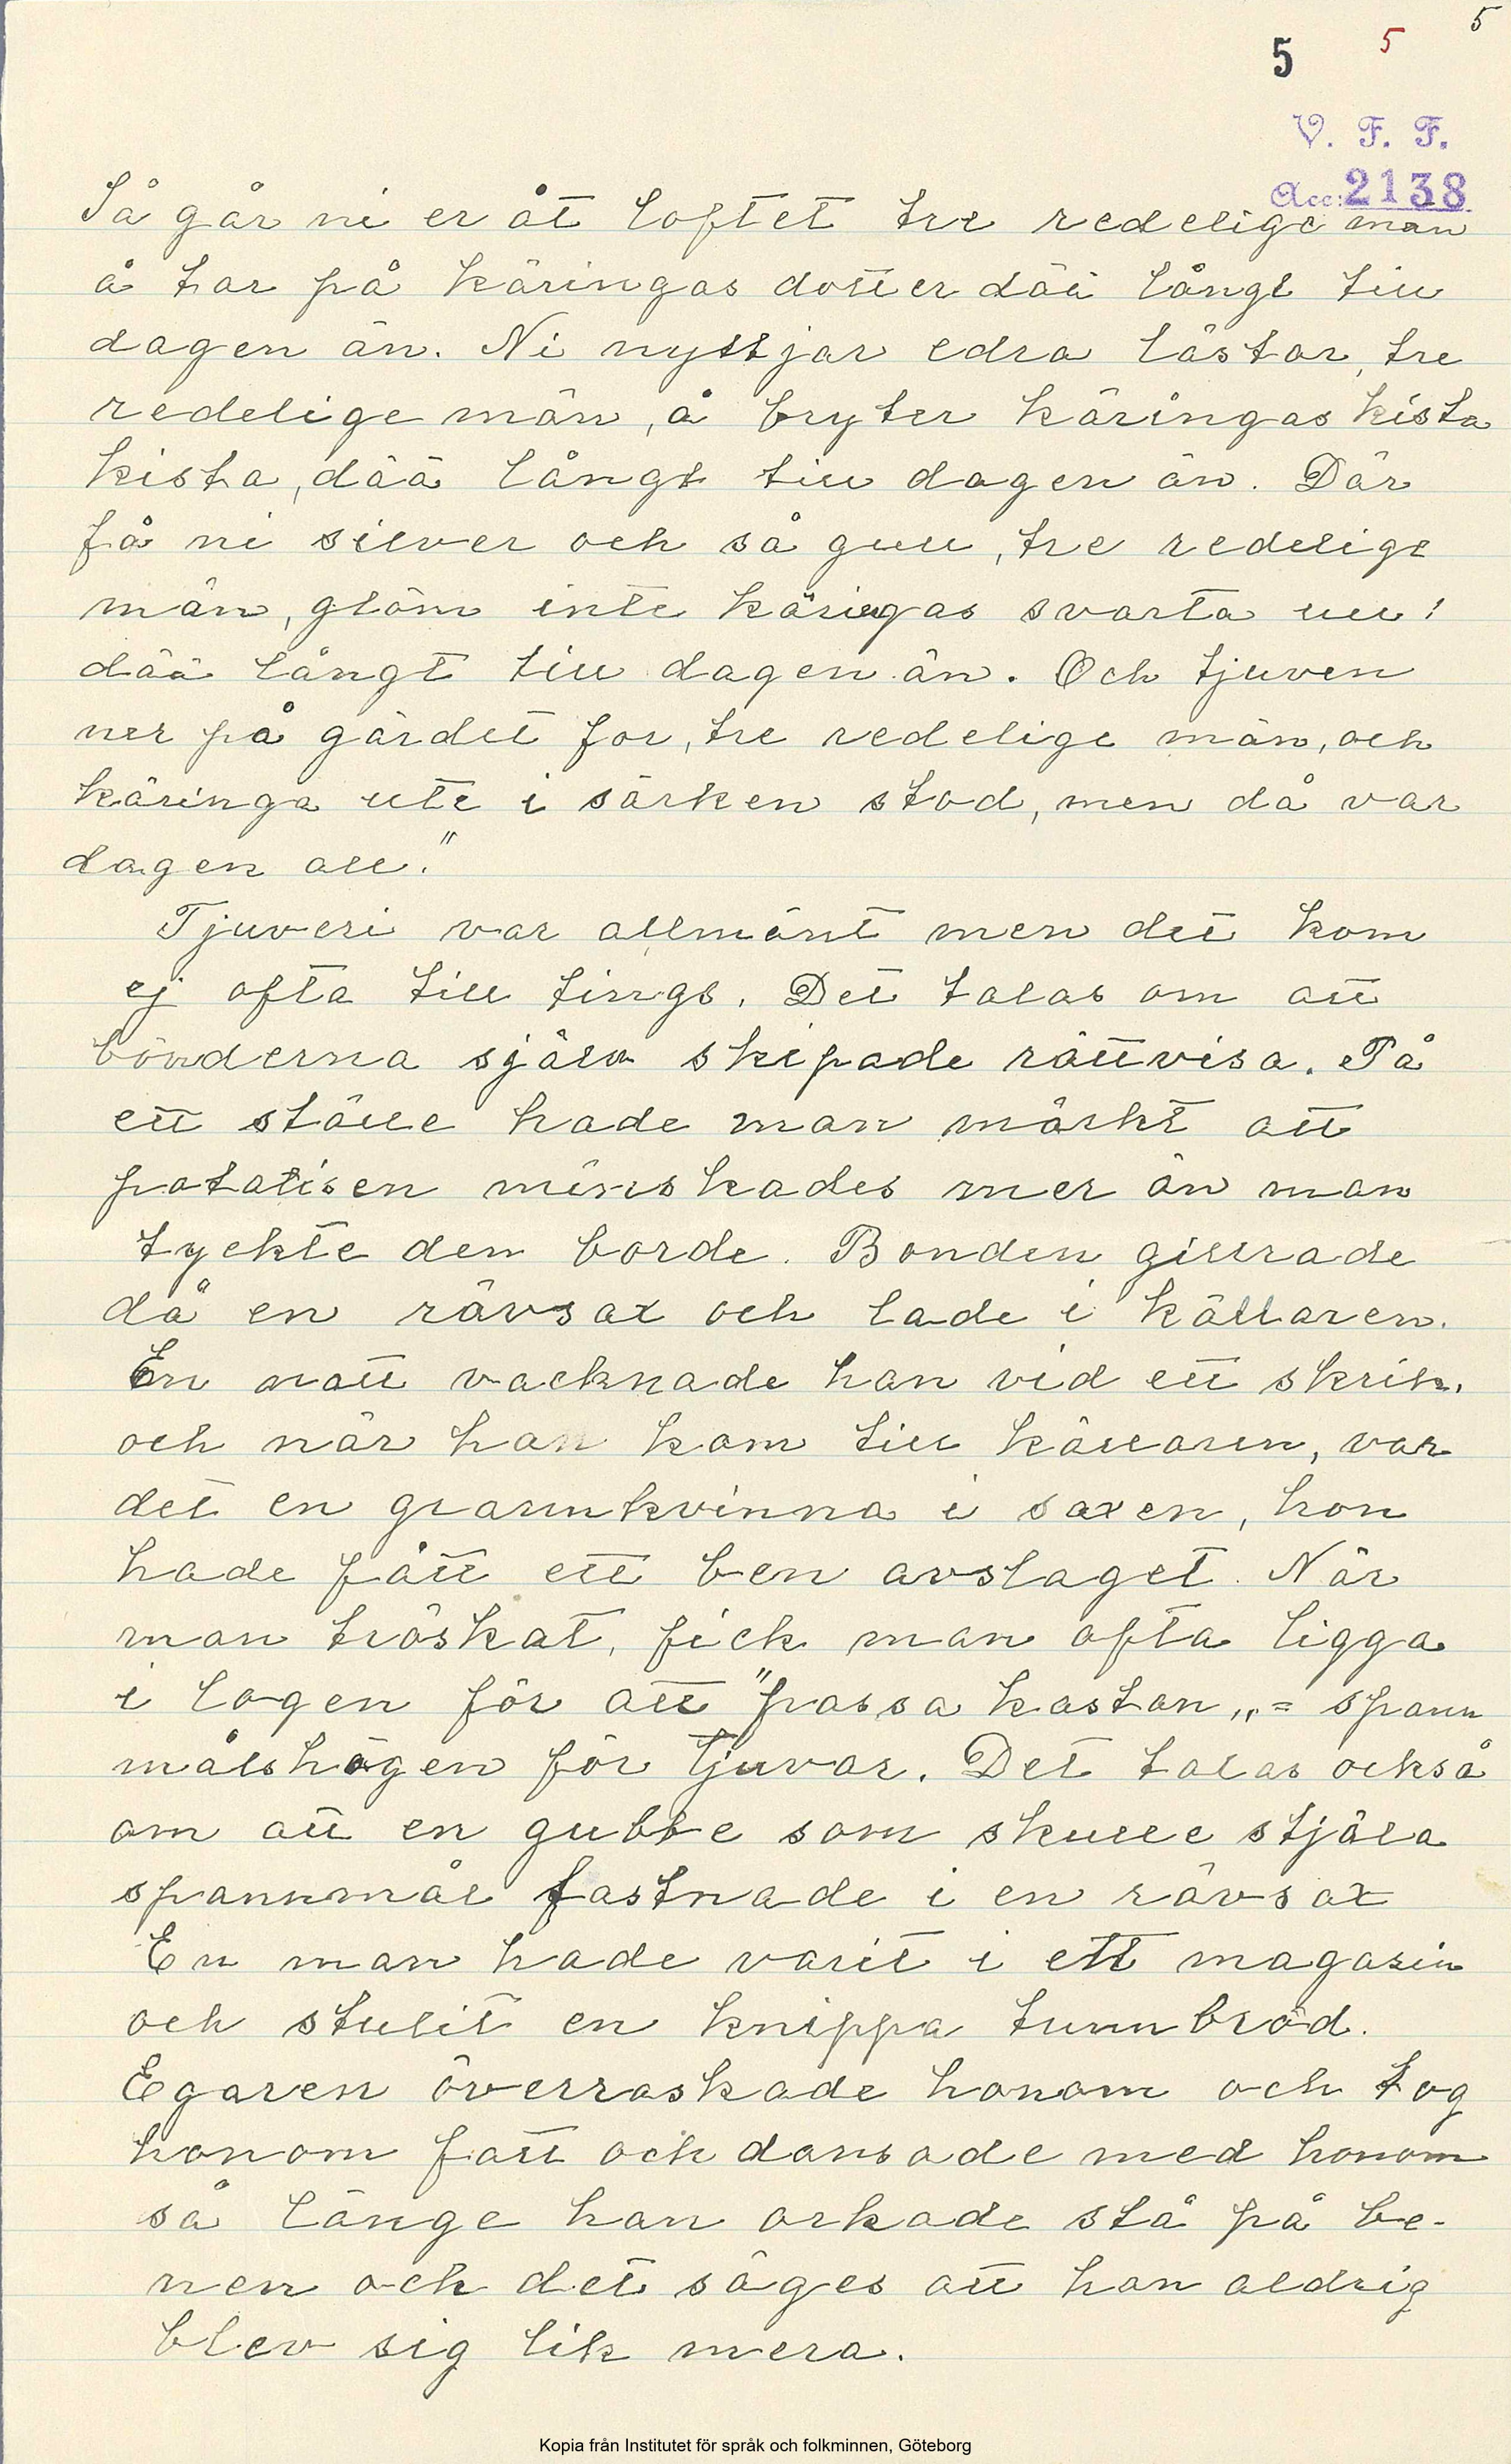 5 5 5
V. F. F.
Acc: 2138
Så går ni er åt loftet tre redelige män
å tar på käringas dotter dää långt till
dagen än. Ni nyttjar edra lästar, tre
redelige män, å bryter käringas kista
kista, dää långt till dagen än. Där
få ni silver och så gull, tre redelige
män, glöm inte käringas svarta ull!
dää långt till dagen än. Och tjuven
ner på gärdet for, tre redelige män, och
käringa ute i särken stod, men då var
dagen all."
Tjuveri var allmänt men det kom
ej ofta till tings. Det talas om att
bönderna själv skipade rättvisa. På
ett ställe hade man märkt att
potatisen minskades mer än man
tyckte den borde. Bonden gillrade
då en rävsax och lade i källaren.
En natt vacknade han vid ett skrik.
och när han kom till källaren, var
det en grannkvinna i saxen, hon
hade fått ett ben avslaget. När
man tröskat, fick man ofta ligga
i logen för att "passa kastan" = spann
målshögen för tjuvar. Det talas också
om att en gubbe som skulle stjäla
spannmål fastnade i en rävsax
En man hade varit i ett magasin
och stulit en knippa tunnbröd.
Egaren överraskade honom och tog
honom fatt och dansade med honom
så länge han orkade stå på be-
nen och det säges att han aldrig
blev sig lik mera.
Kopia från Institutet för språk och folkminnen, Göteborg